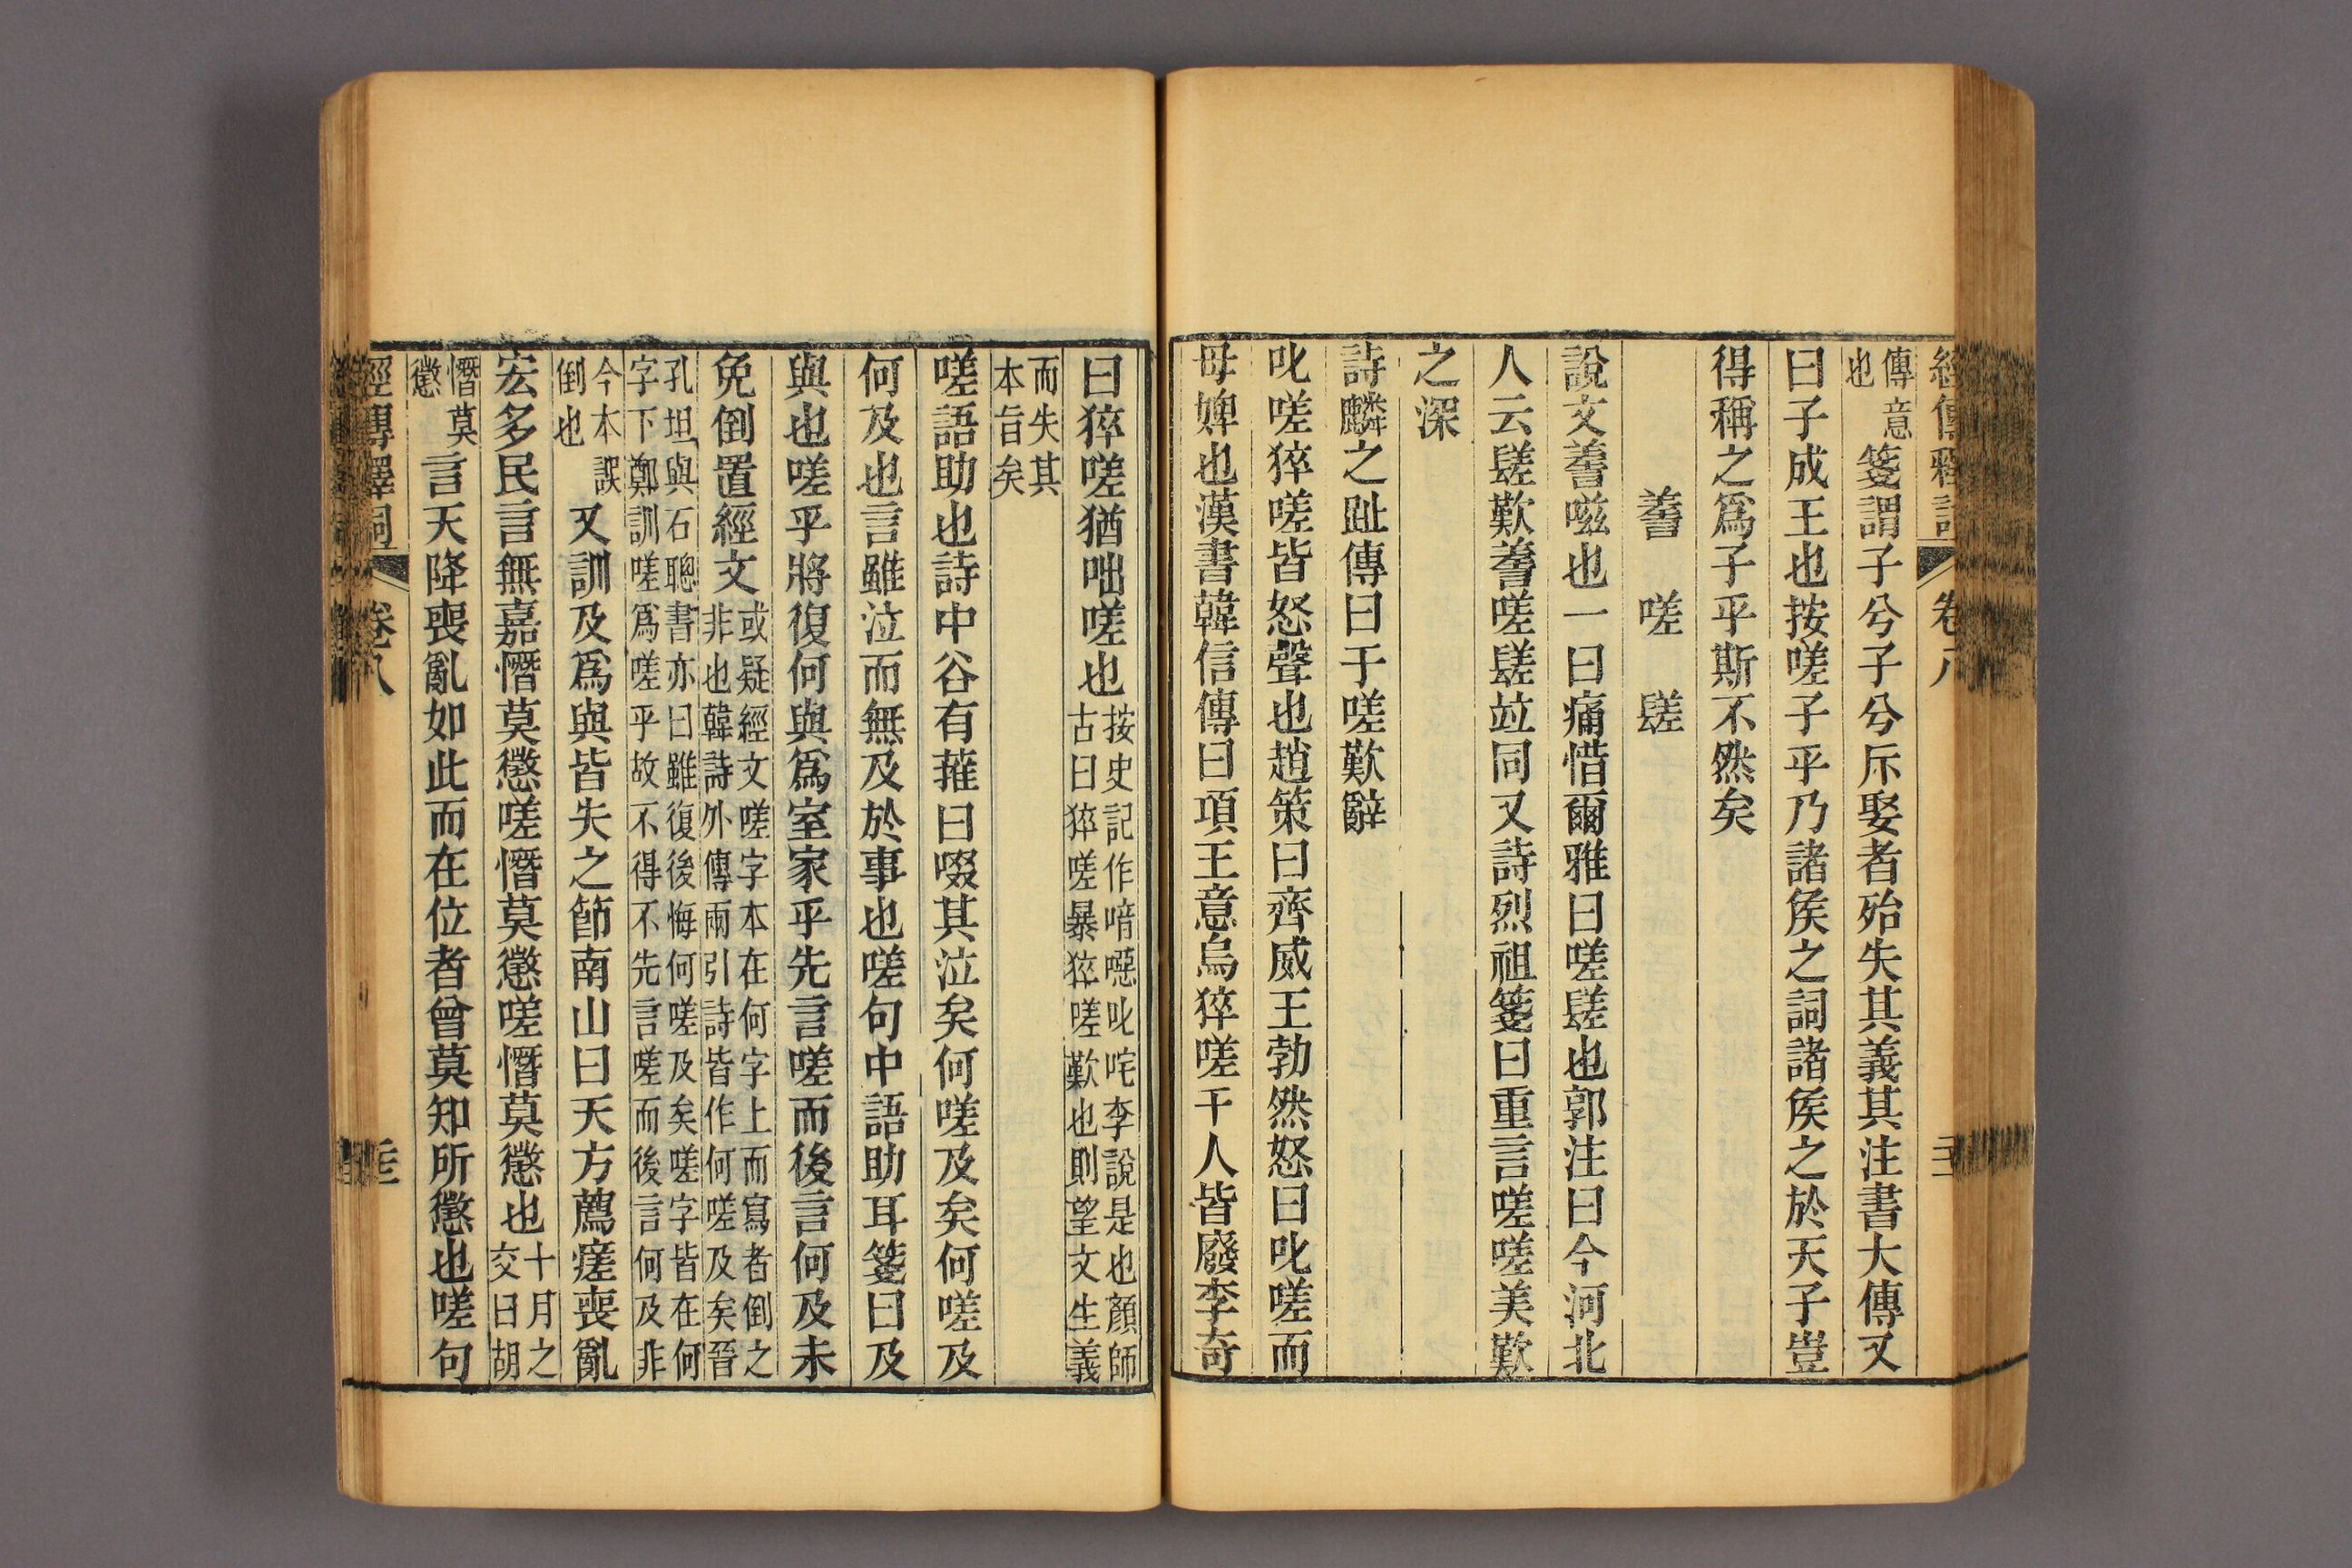 經傳釋詞 卷八
傳意
也
箋謂子兮子兮斥娶者殆失其義其注書大傳又
曰子成王也按嗟子乎乃諸矦之詞諸矦之於天子豈
得稱之爲子乎斯不然矣
嗟
說文
嗞也一曰痛惜爾雅曰嗟
也郭注曰今河北
人云
歎
嗟
竝同又詩烈祖箋曰重言嗟嗟美歎
之深
詩麟之趾傳曰于嗟歎辭
叱嗟猝嗟皆怒聲也趙策曰齊威王勃然怒曰叱嗟而
母婢也漢書韓信傳曰項王意烏猝嗟千人皆廢李奇
曰猝嗟猶咄嗟也
按史記作喑噁叱咤李說是也顏師
古曰猝嗟暴猝嗟歎也則望文生義
而失其
本旨矣
嗟語助也詩中谷有蓷曰啜其泣矣何嗟及矣何嗟及
何及也言雖泣而無及於事也嗟句中語助耳箋曰及
與也嗟乎將復何與爲室家乎先言嗟而後言何及未
免倒置經文
或疑經文嗟字本在何字上而寫者倒之
非也韓詩外傳兩引詩皆作何嗟及矣晉
孔坦與石聰書亦曰雖復後悔何嗟及矣嗟字皆在何
字下鄭訓嗟爲嗟乎故不得不先言嗟而後言何及非
今本誤
倒也
又訓及爲與皆失之節南山曰天方薦瘥喪亂
宏多民言無嘉憯莫懲嗟憯莫懲嗟憯莫懲也
十月之
交曰胡
憯莫
懲
言天降喪亂如此而在位者曾莫知所懲也嗟句
經傳釋詞 卷八